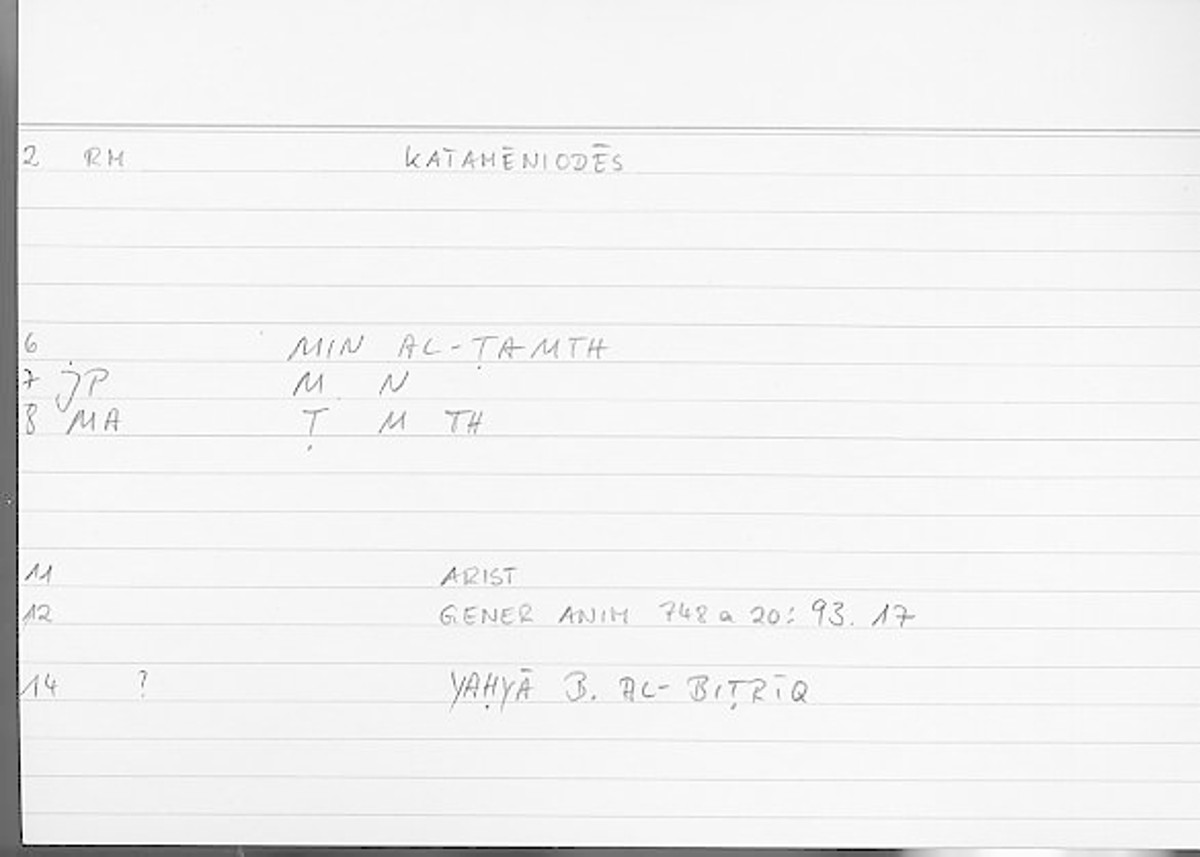 2 RM KATAMĒNIODĒS
6 MIN AL-ṬAMTH
7 jP M N
8 MA Ṭ M TH
11 ARIST
12 GENER ANIM 748 a 20: 93. 17
14 ? YAḤYĀ B. AL-BIṬRĪQ